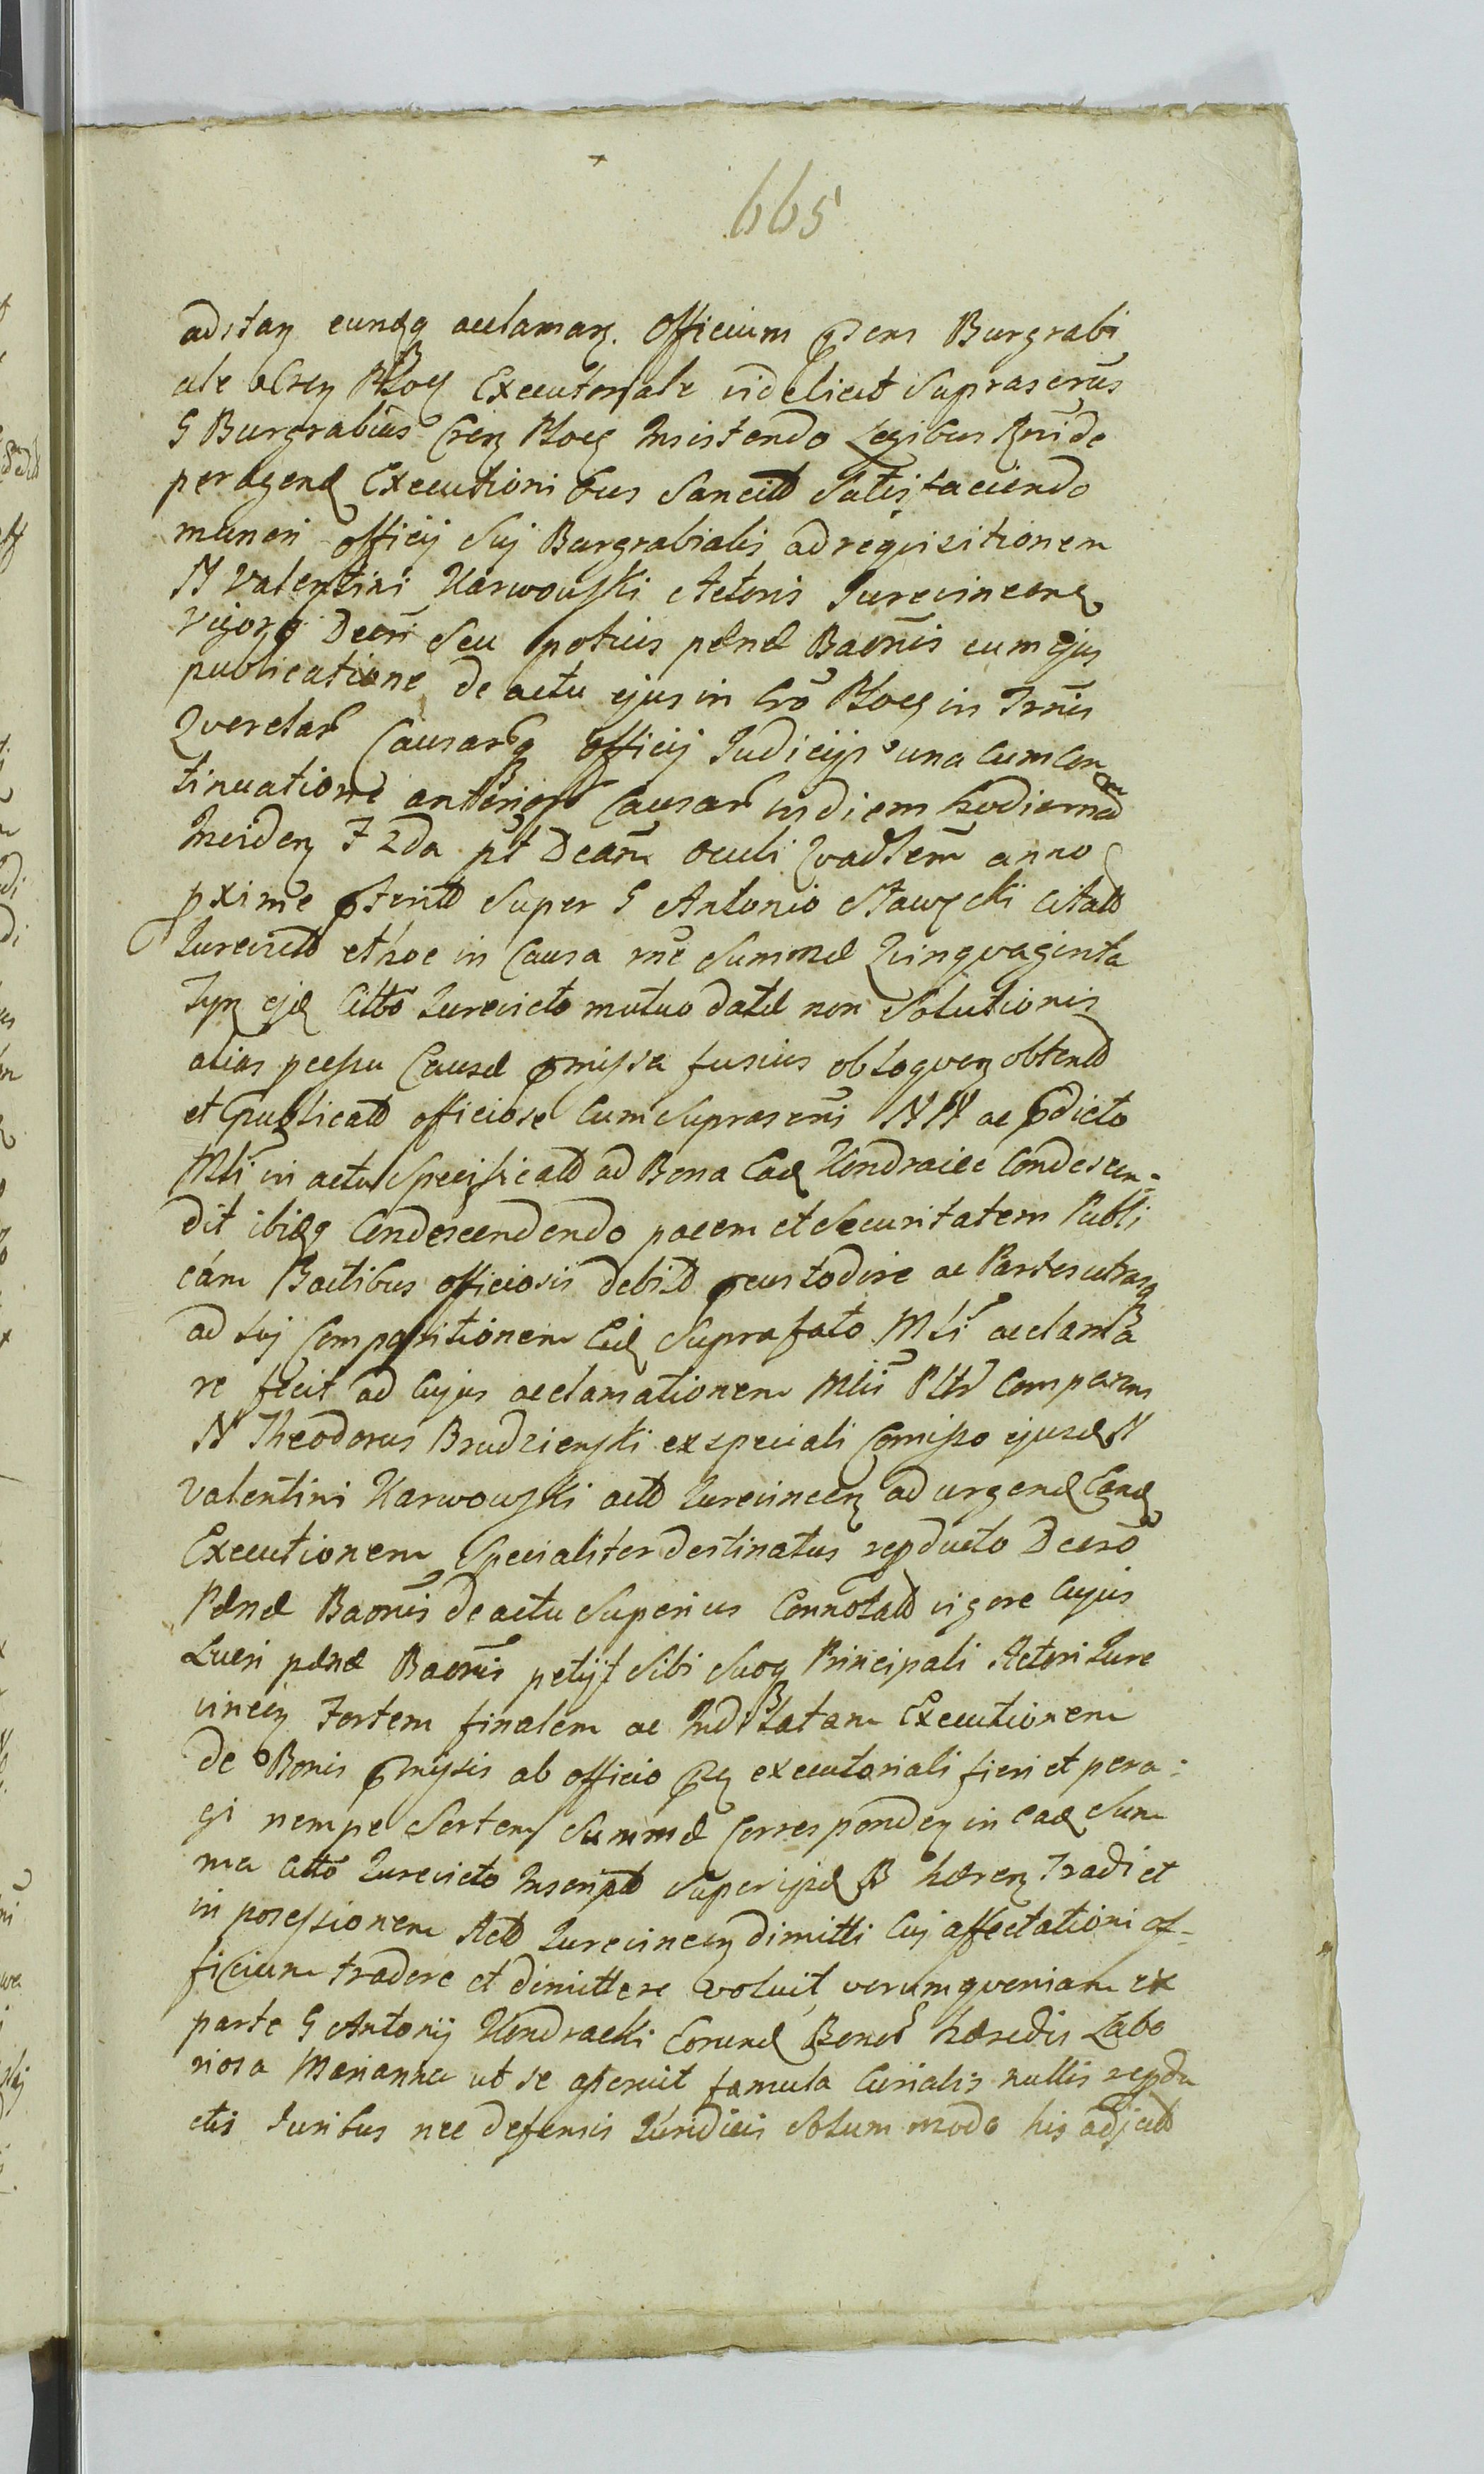 665
adstan eundq acclaman. Officium pdens Burgrabi
ale Cren Ploc Executoriale videlicet Suprascrus
G Burgrabius Cren Ploc Insistendo Legibus Rnide
peragend Executionibus Sancitt Satisfaciendo
muneri officij Suj Burgrabialis ad requisitionem
N Valentini Karwowski Actoris Jurevincent
Vigore Decri Seu potius pænæ Baonis cum ejus
publicatione de actu ejus in Cro Ploc in Trnis
Querelar Causarq officij Judicijs una cum Con
tinuatione anterior Causar in diem hodiernam
Inciden F 2da pt Dcam Oculi Quadlem anno
pxime pterito Super G Antonio Stawscki Citato
Jurevicto et hoc in Causa rne Summæ Quinquaginta
Tyn ejd Citto Jurevicto mutuo datæ non Solutionis
alias pcessu Causæ pmissa fusius obloquen obtento
et publicato officiose Cum Suprascris NN ac pdicto
Mli in actu Specificato ad Bona Ead Kendraice Condescen-
dit ibidq Condescendendo pacem et Securitatem Publi
cam actibus officiosis debitt pcustodire ac Partes utrasq
ad Suj Compositionem Eid Suprafato Mli acclama
re fecit ad Cujus acclamationem Mlis Comparens
N Theodorus Brudzienski ex speciali Comisso ejusd N
Valentini Karwowski actt Jurevincen ad urgend Eand
Executionem Specialiter destinatus repducto Decro
Pænæ Baonis de actu Superius Connotato vigore Cujus
Lueri pænæ Baonis petijt Sibi Suoq Principali Actori Jure
vincen Fortem finalem ac Indilatam Executionem
de Bonis pmissis ab officio pn executoriali fieri et pera-
gi nempe Sortem Summæ Corresponden in ead Sum
ma Citto Jurevicto Inscript Super ijsd B hæren Tradi et
in posessionem Actt Jurevincen dimitti Cuj affectationi of-
ficium tradere et dimittere voluit, verum quoniam ex
parte G Antonij Kendracki Eorund Bonor hæredis Labo
riosa Marianna ut se asseruit famula Curialis nullis repdu
ctis Juribus nec defensis Juridicis Solum modo his adject